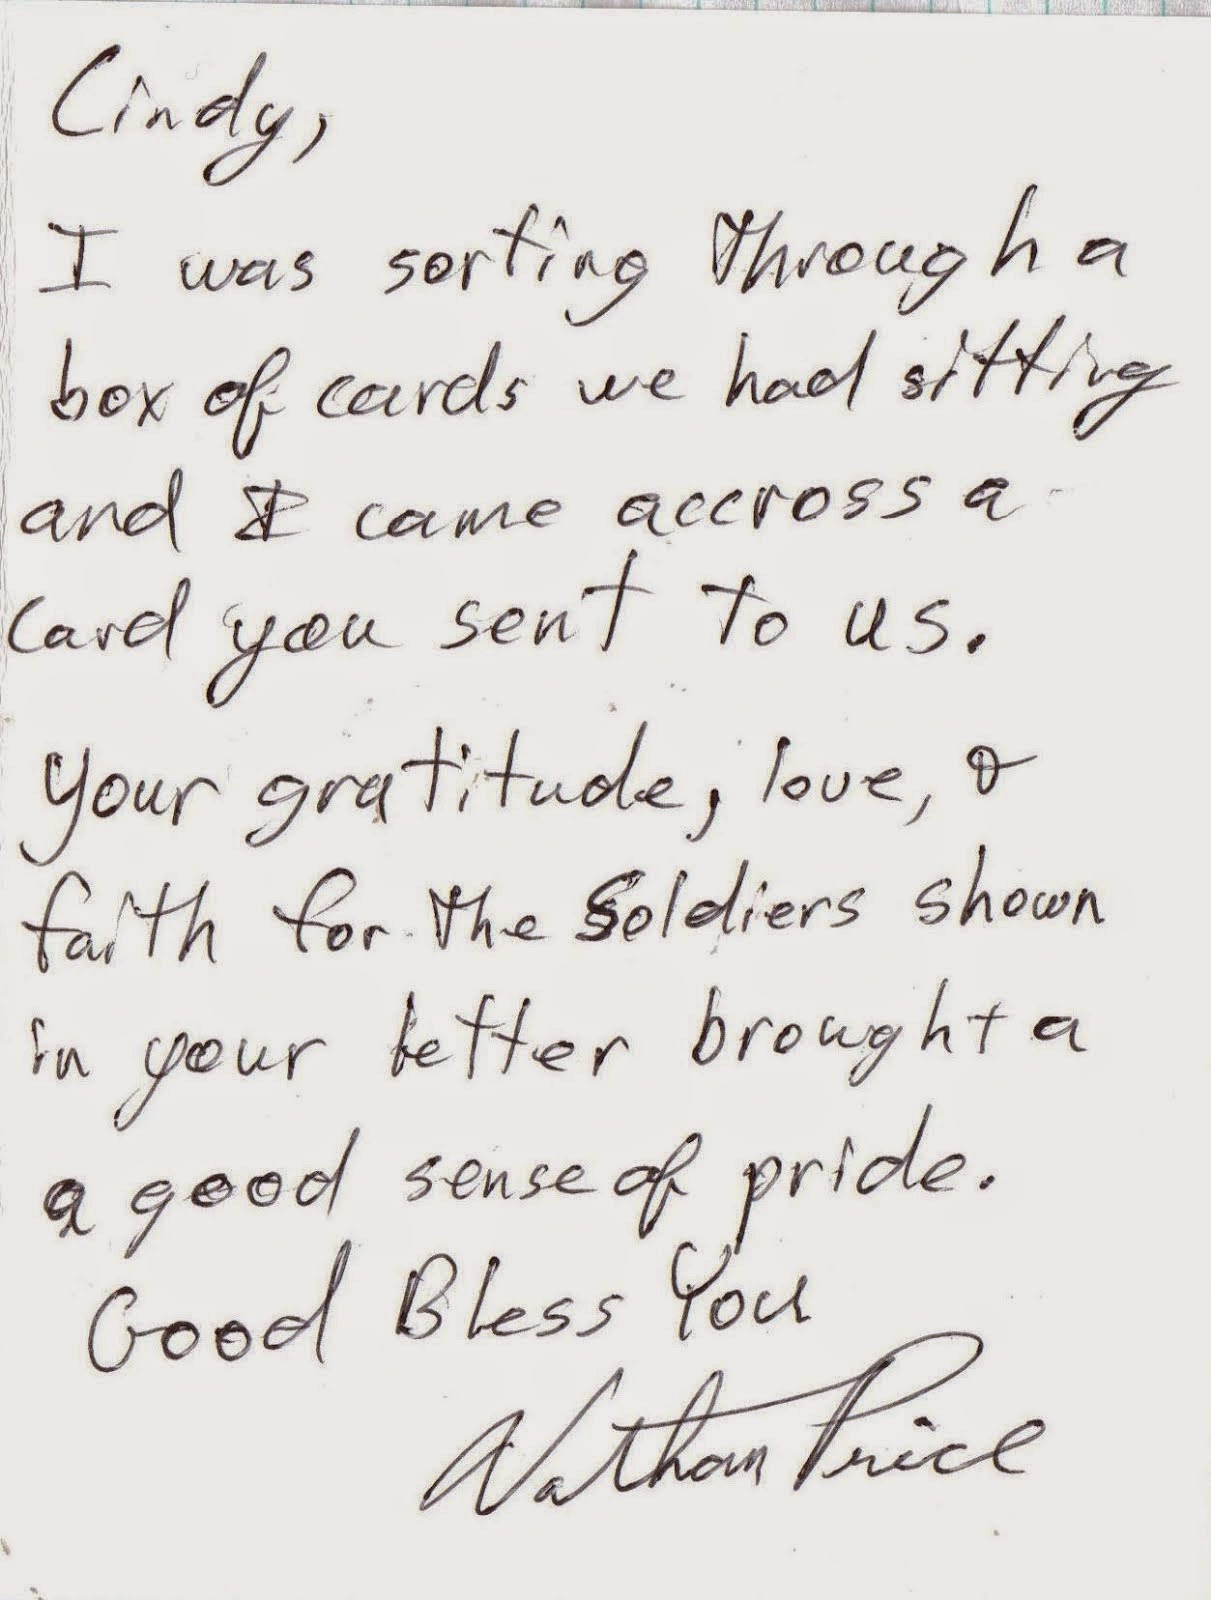 Cindy,
I was sorting through a
box of cards we had sitting
and I came accross a
card you sent to us.
Your gratitude, love, &
faith for the Soldiers shown
in your letter brought a
a good sense of pride.
Good Bless You
Nathan Price